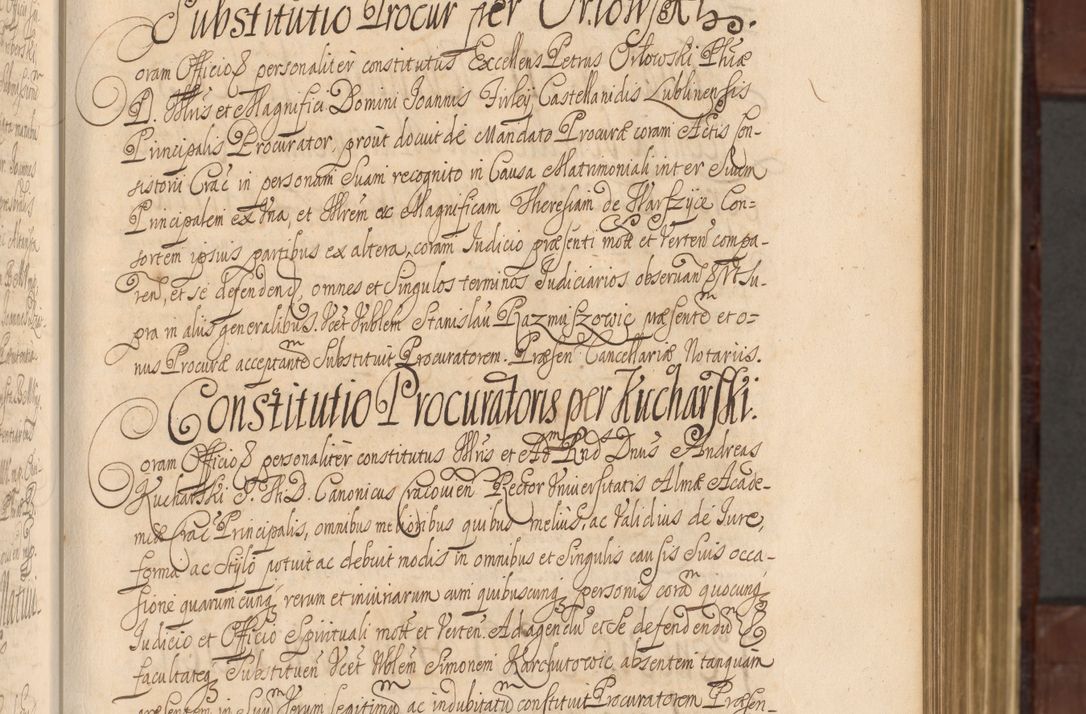 Substitutio Procur per Orłowski.
Coram Officio &c personaliter constitutus Excellens Petrus Orłowski Phiæ
D. Illris et Magnifici Domini Joannis Firley Castellanidis Lublinensis
Principalis Procurator, prout docuit de Mandato Procuræ coram Actis Con-
sistorii Crac in personam Suam recognito in Causa Matrimoniali inter Suum
Principalem ex Una, et Illrem ac Magnificam Theresiam de Warszyce Con-
sortem ipsius partibus ex altera, coram Judicio præsenti mott et Verten compa-
ren, et se defenden, omnes et Singulos terminos Judiciarios observan & Ut Su-
pra in aliis generalibus. Scet Nblem Stanislau Kazmiszowic præsente et o-
nus Procuræ acceptante Substituit Procuratorem. Præsen Cancellariæ Notariis.
Constitutio Procuratoris per Kucharski.
Coram Officio &c personaliter constitutus Illris et Ad Rnd Dnus Andreas
Kucharski S. Th. D. Canonicus Cracovien Rector Universitatis Almæ Acade-
miæ Crac Principalis, omnibus melioribus quibus melius, ac Validius de Jure,
forma ac Stylo potuit ac debuit modis in omnibus et Singulis causis Suis occa-
sione quarumcunq rerum et iniuriarum cum quibuscunq personis cora quocunq
Judicio et Officio Spirituali mott et Verten. Ad agendu et Se defendendu &
facultateq Substituen Scet Nblem Simonem Karchutowic absentem tanquam
præsentem in Suu Verum legitimu ac indubitatu constituit Procuratorem Præsen-